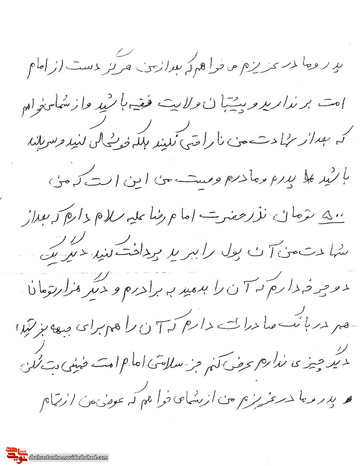 پدر و مادر عزیزم می خواهم که بعد از من هرگز دست از امام
امت برندارید و پشتیبان ولایت فقیه باشید و از شما می خواهم
که بعد از شهادت من ناراحتی نکنید بلکه خوشحالی کنید و سربلند
باشید پدرم و مادرم وصیت من این است که من
۵۰۰ تومان نذر حضرت امام رضا علیه سلام دارم که بعد از
شهادت من آن پول را ببرید پرداخت کنید دیگر یک
دوچرخه دارم که آن را بدهید به برادرم و دیگر هزار تومانا
هم در بانک صادرات دارم که آن را هم برای جبهه بفرستید
دیگر چیزی ندارم عرض کنم جز سلامتی امام امت خمینی بت شکن
و پدر و مادر عزیزم من از شما می خواهم که عوض من از تمام